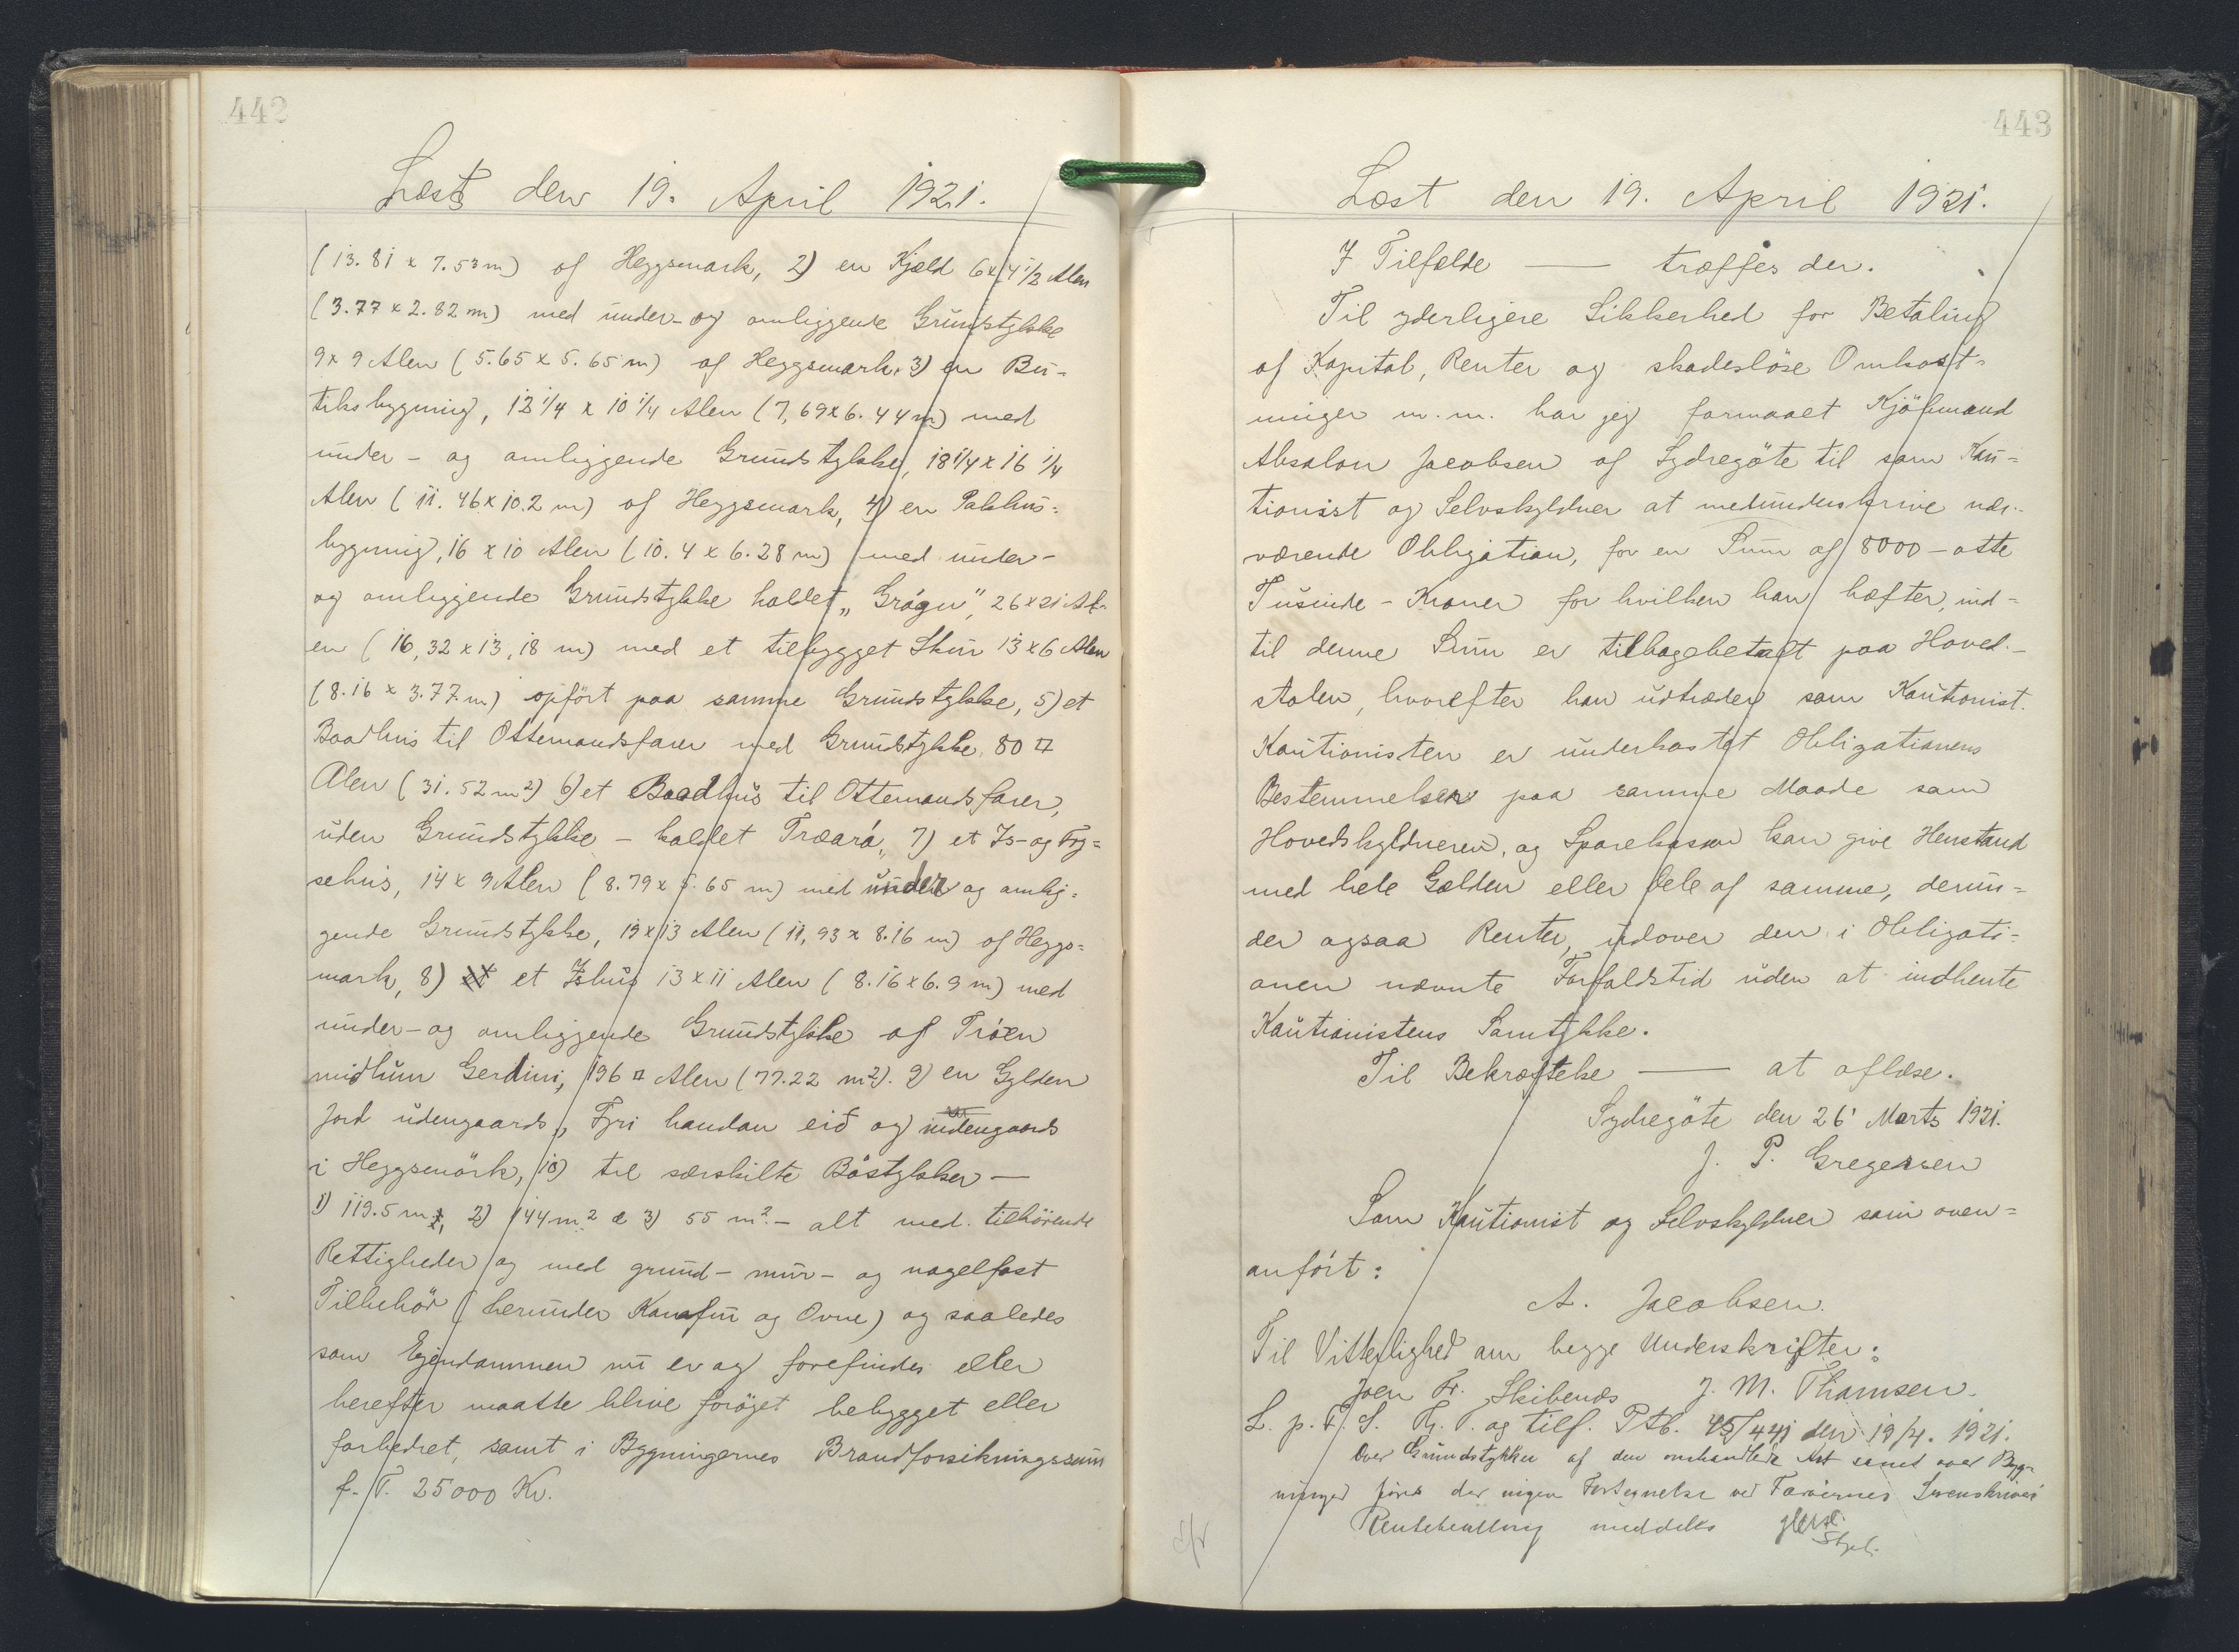 442
Læst den 19. April 1921.
(13.81 x 7.53 m) af Heggsmark, 2) en Kjæld 6 x 4 1/2 Alen
(3.77 x 2.82 m) med under- og omliggende Grundstykke
9 x 9 Alen (5.65 x 5.65 m) af Heggsmark, 3) en Bu-
tiksbygning, 12 1/4 x 10 1/4 Alen (7,69 x 6.44 m) med
under- og omliggende Grundstykke, 18 1/4 x 16 1/4
Alen (11.46 x 10.2 m) af Heggsmark, 4) en Pakhus-
bygning, 16 x 10 Alen (10.4 x 6.28 m) med under-
og omliggende Grundstykke kaldet „Grógv", 26 x 21 Al-
en (16,32 x 13,18 m) med et tilbygget Skur 13 x 6 Alen
(8.16 x 3.77 m) opført paa samme Grundstykke, 5) et
Baadhus til Ottemandsfarer med Grundstykke 80 □
Alen (31.52 m²) 6) et Baadhus til Ottemandsfarer,
uden Grundstykke - kaldet Træará„ 7) et Is- og Fry-
sehus, 14 x 9 Alen (8.79 x 5.65 m) med under og omlig-
gende Grundstykke, 19 x 13 Alen (11,93 x 8.16 m) af Heggs-
mark, 8) et et Ishus 13 x 11 Alen (8.16 x 6.9 m) med
under- og omliggende Grundstykke af Tróen
miðlum Gerdini, 196 □ Alen (77.22 m²). 9) en Gylden
Jord udengaards, Fyri handan eið og indengaards
i Heggsmörk, 10) tre særskilte Bøstykker —
1) 119.5 m², 2) 144 m² & 3) 55 m² - alt med tilhörende
Rettigheder og med grund- mur- og nagelfast
Tilbehör (herunder Komfur og Ovne) og saaledes
som Ejendommen nu er og forefindes eller
herefter maatte blive forøget bebygget eller
forbedret, samt i Bygningernes Brandforsikringssum
f. T. 25000 Kr.
443
Læst den 19. April 1921.
I Tilfælde — træffes der.
Til yderligere Sikkerhed for Betaling
af Kapital, Renter og skadesløse Omkost-
ninger m. m. har jeg formaaet Kjøbmand
Absalon Jacobsen af Sydregöte til som Kau-
tionist og Selvskyldner at medunderskrive nær-
værende Obligation, for en Sum af 8000 - otte
Tusinde - Kroner for hvilken han hæfter, ind-
til denne Sum er tilbagebetalt paa Hoved-
stolen, hvorefter han udtræder som Kautionist.
Kautionisten er underkastet Obligationens
Bestemmelser paa samme Maade som
Hovedskyldneren, og Sparekassen kan give Henstand
med hele Gælden eller dele af samme, derun-
der ogsaa Renter, udover den i Obligati-
onen nævnte Forfaldstid uden at indhente
Kautionistens Samtykke.
Til Bekræftelse — at aflæse.
Sydregöte den 26' Marts 1921.
J. P. Gregersen
Som Kautionist og Selvskyldner som oven-
anført:
A. Jacobsen.
Til Vitterlighed om begge Underskrifter:
Joen Fr. Skibenæs J. M. Thomsen.
L. p. F. S. Th. T. og tilf. Ptb. 45/441 den 19/4. 1921.
Over Grundstykker af den omhandlede Art samt over Byg-
ninger føres der ingen Fortegnelse ved Færøernes Sorenskriveri